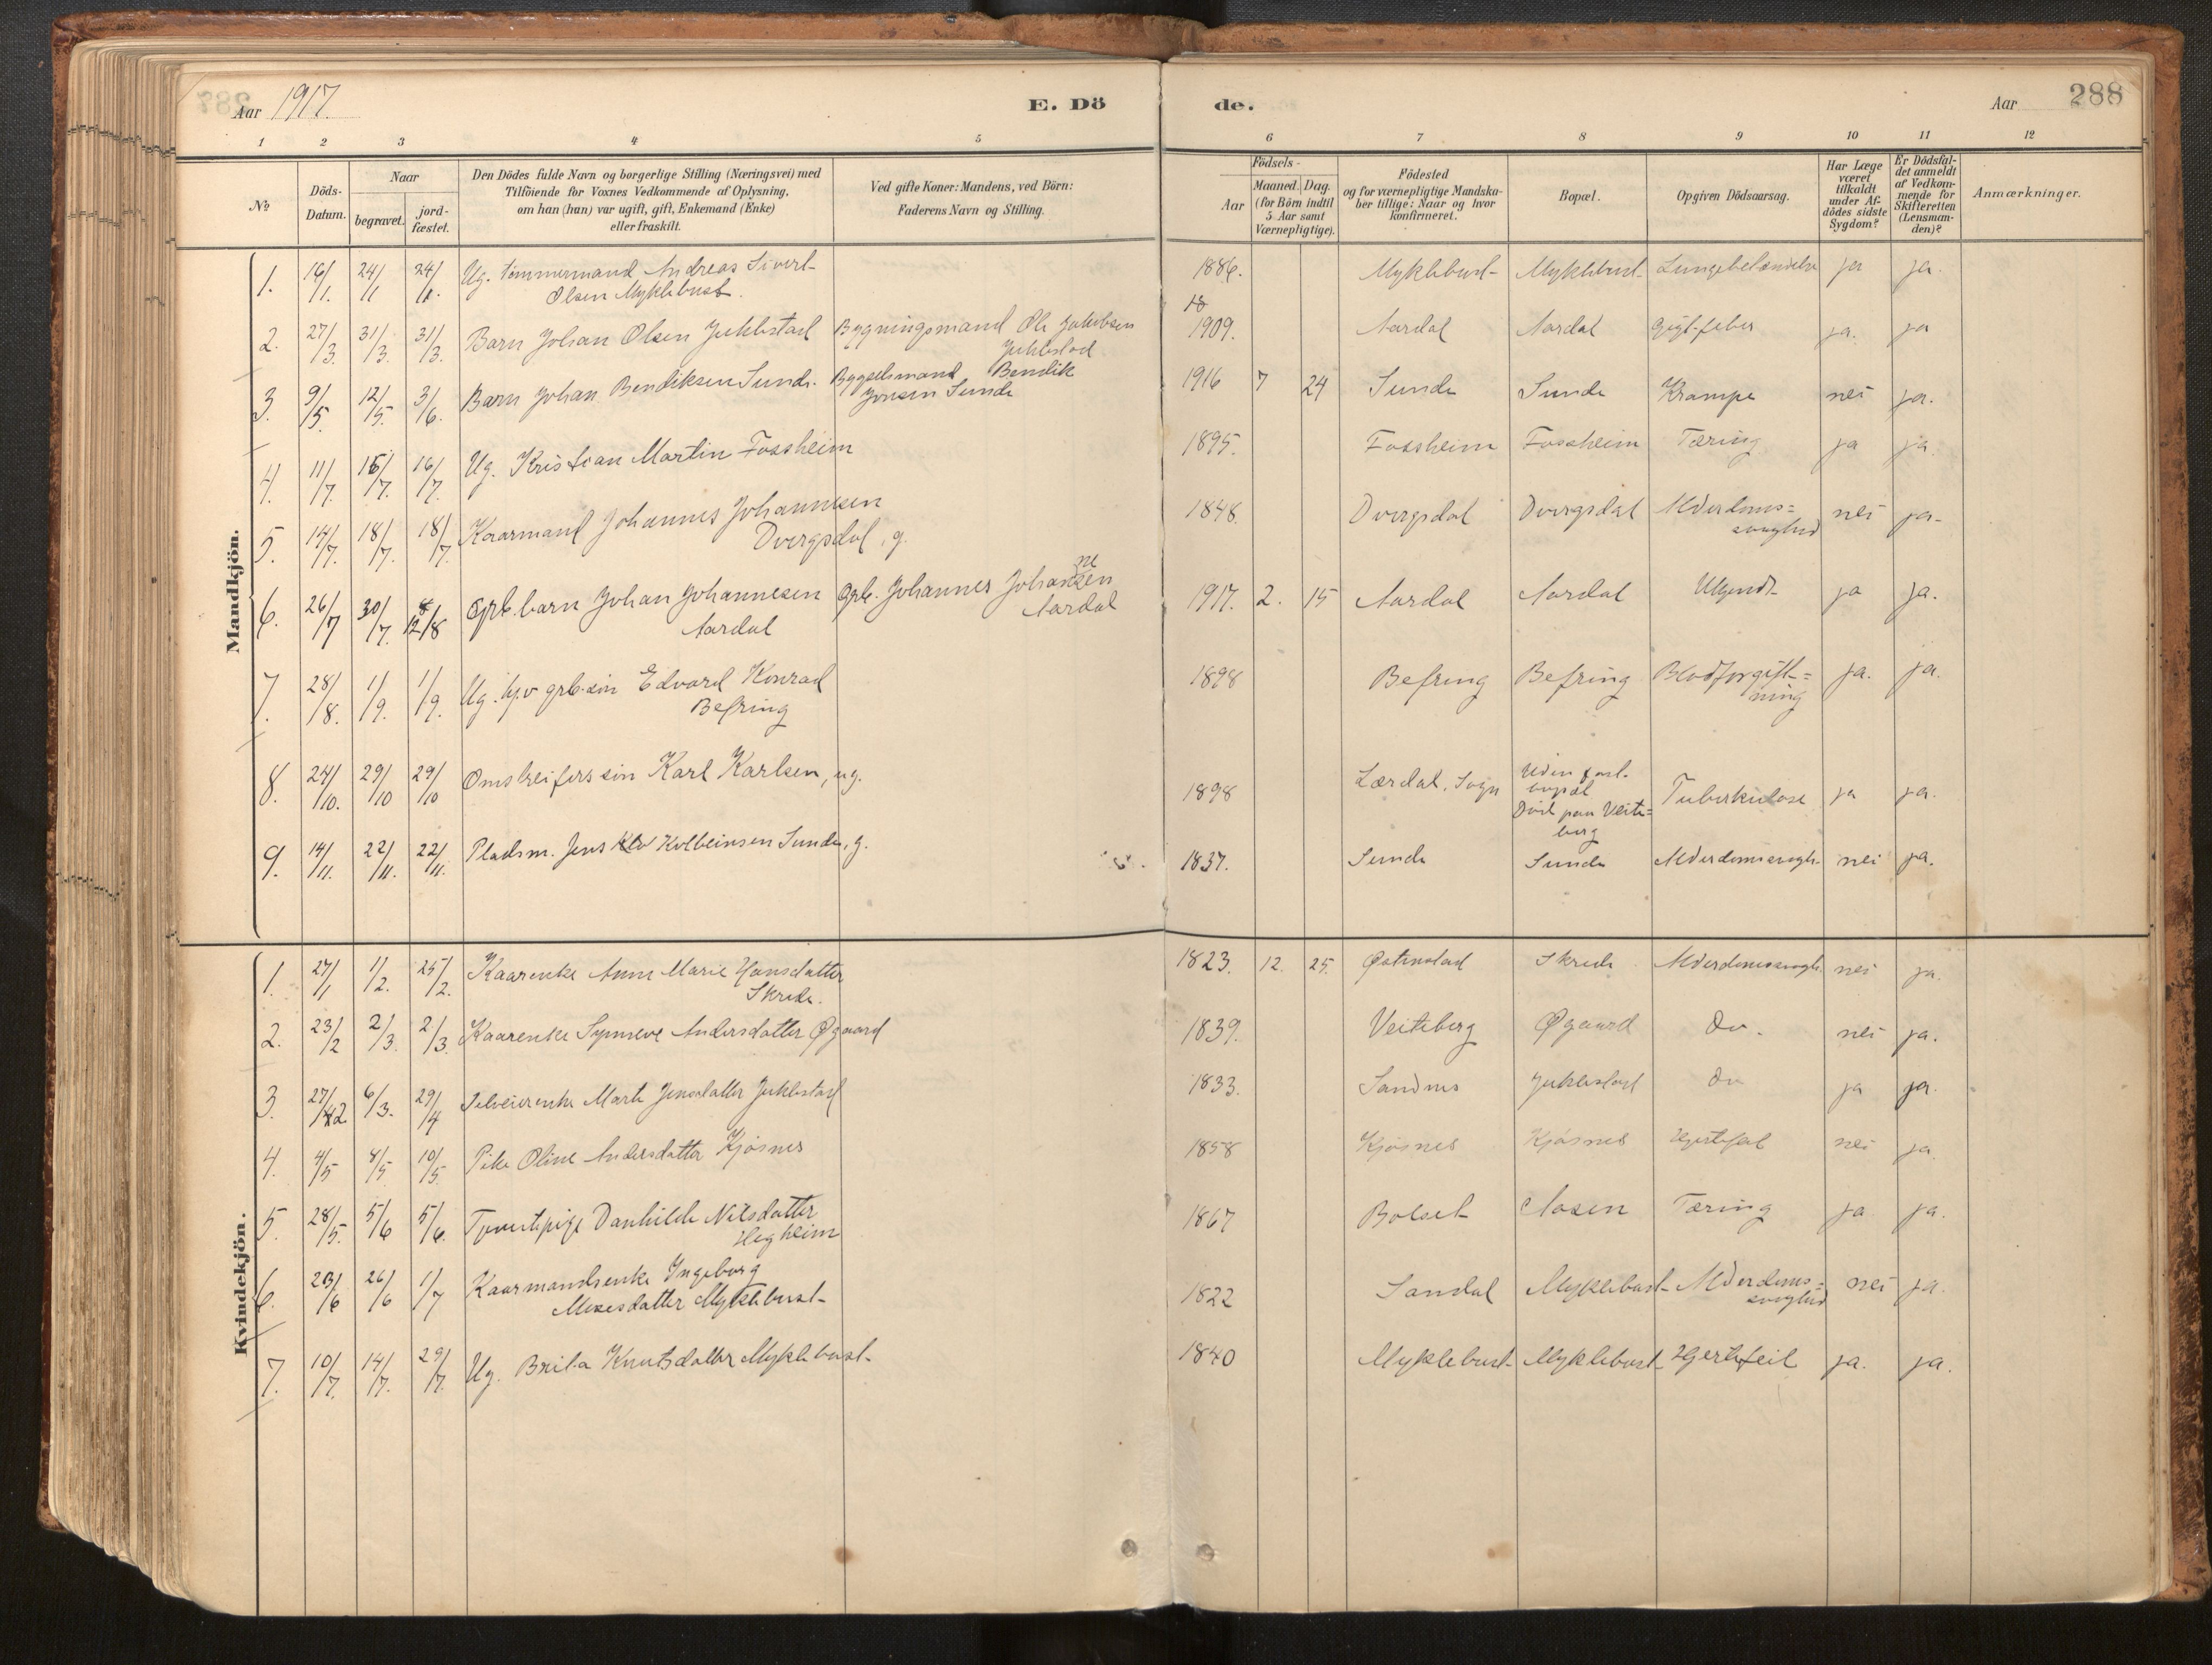 Aar 1917.
E. Dö
de.
Aar
288
1 2 3 4 5 6 7 8 9 10 11 12
No
Döds-Datum.
Naar
begravet.
jord-fæstet.
Den Dödes fulde Navn og borgerlige Stilling (Næringsvei) med
Tilföiende for Voxnes Vedkommende af Oplysning,
om han (hun) var ugift, gift, Enkemand (Enke)
eller fraskilt.
Ved gifte Koner: Mandens, ved Börn:
Faderens Navn og Stilling.
Födsels-
Aar
Maaned. Dag.
(for Börn indtil
5 Aar samt
Værnepligtige).
Födested
og for værnepligtige Mandska-
ber tillige: Naar og hvor
konfirmeret.
Bopæl.
Opgiven Dödsaarsag.
Har Læge
været
tilkaldt
under Af-
dödes sidste
Sygdom?
Er Dödsfal-
det anmeldt
af Vedkom-
mende for
Skifteretten
(Lensman-
den)?
Anmærkninger.
Mandkjön.
1. 16/1. 24/1 24/1. Ug. tømmermand Andreas Sivert- 1886. Myklebust- Myklebust- Lungebetændelse ja ja.
Olsen Myklebust.
18
2. 27/3. 31/3. 31/3. Barn Johan Olsen Juklestad Bygningsmand Ole Jakobsen 1909. Aardal Aardal Gigt-feber ja. ja
Juklestad
3. 9/5. 12/5. 3/6. Barn Johan Bendiksen Sunde. Bygselsmand Bendik 1916 7 24 Sunde Sunde Krampe nei ja.
Jonsen Sunde
4. 11/7. 15/7. 16/7. Ug. Kristian Martin Fossheim 1895. Fossheim Fossheim Tæring ja ja.
5. 14/7. 18/7. 18/7. Kaarmand Johannes Johannesen 1848. Dvergsdal Dvergsdal Alderdoms= nei ja-
Dvergsdal, g. svaghed
6. 26/7 30/7. 12/8 Grb. barn Johan Johannesen Grb. Johannes Johannesen 1917. 2. 15 Aardal Aardal Ukjendt ja ja.
Aardal Aardal
7. 28/8. 1/9. 1/9. Ug. hjv grb.søn Edvard Konrad 1898 Befring Befring Blodforgift-= ja. ja.
Befring ning
8. 24/10. 29/10 29/10 Omstreifers søn Karl Karlsen, ug. 1898 Lærdal, Sogn Uden fast- bopæl Tuberkulose ja ja.
Død paa Veite=
berg
9. 14/11. 22/11. 22/11. Pladsm. Jens Kolbeinsen Sunde, g. 1837. Sunde Sunde Alderdomssvagh. nei ja.
Kvindekjön.
1. 27/1 1/2. 25/2. Kaarenke Anne Marie Hansdatter 1823. 12. 25. Østenstad Skrede Alderdomssvagh. nei ja.
Skrede.
2. 23/2 2/3. 2/3. Kaarenke Synneve Andersdatter Øgaard 1839. Veiteberg Øgaard Do. nei ja.
3. 27/2 6/3. 29/4 Selveierenke Marte Jensdatter Juklestad 1833. Sandnes Juklestad Do ja ja.
4. 4/5 8/5 10/5. Pike Oline Andersdatter Kjøsnes 1858 Kjøsnes Kjøsnes Hjertefeil nei ja.
5. 28/5. 5/6 5/6. Tjenestpige Danhilde Nilsdatter 1867 Bolset Aasen Tæring ja ja.
Hegheim
6. 23/6 26/6 1/7 Kaarmandsenke Ingeborg 1822 Sandal Myklebust- Alderdoms= nei ja.
Mosesdatter Myklebust- svaghed
7. 10/7. 14/7. 29/7. Ug. Brita Knutsdatter Myklebust- 1840 Myklebust- Myklebust- Hjertefeil ja. ja.